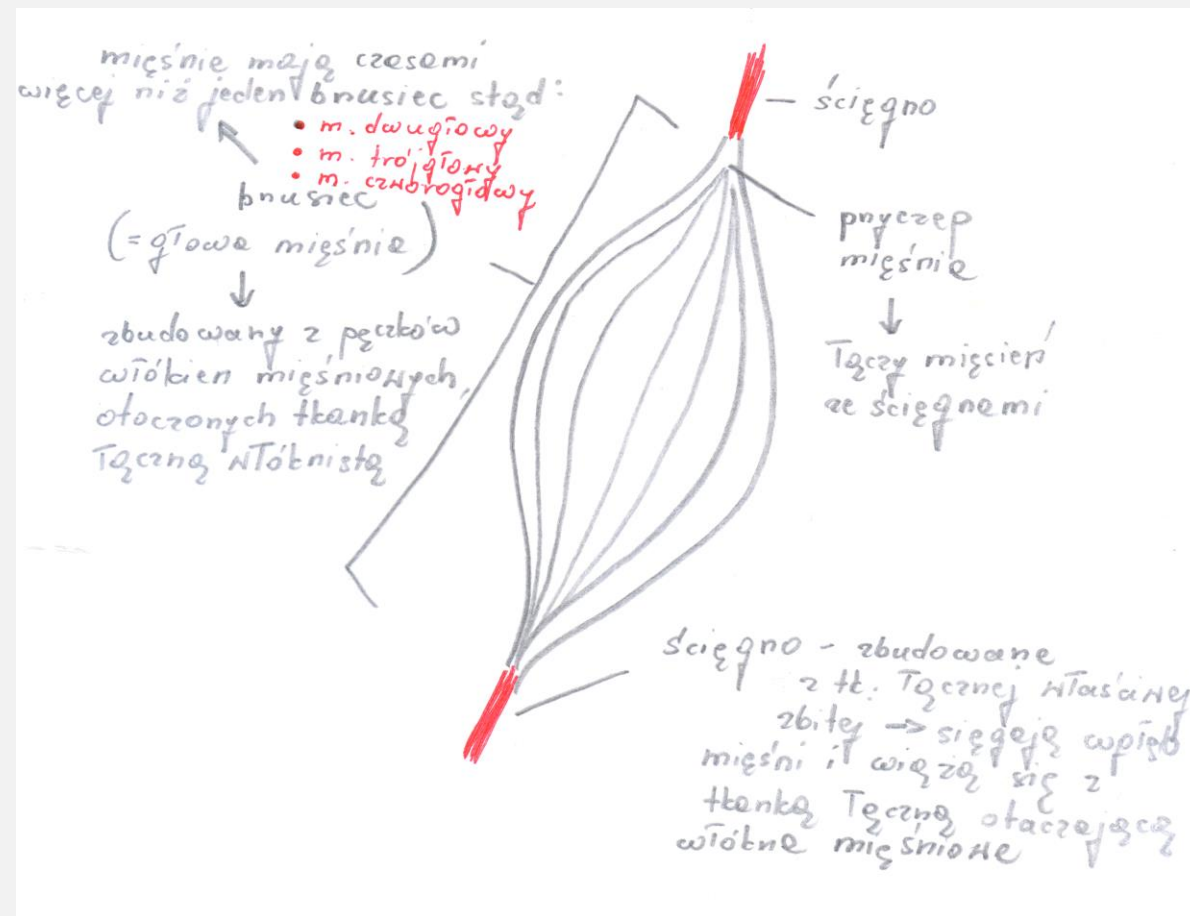 mięśnie mają czasami
więcej niż jeden brzusiec stąd:
• m. dwugłowy
• m. trójgłowy
• m. czworogłowy
brzusiec
(= głowa mięśnia)
zbudowany z pęczków
włókien mięśniowych,
otoczonych tkanką
łączną włóknistą
— ścięgno
przyczep
mięśnia
łączy mięsień
ze ścięgnami
ścięgno - zbudowane
z tk. łącznej właściwej
zbitej → sięgają w głąb
mięśni i wiążą się z
tkanką łączną otaczającą
włókna mięśniowe